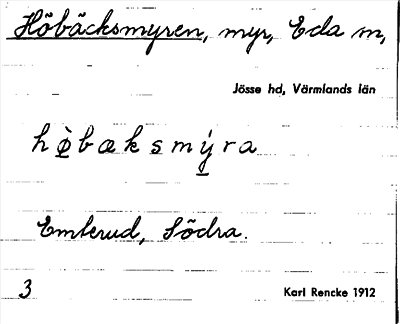 Höbäcksmyren, myr, Eda m,
Jösse hd, Värmlands län
hø̀bæksmýra
Emterud, Södra.
3
Karl Rencke 1912